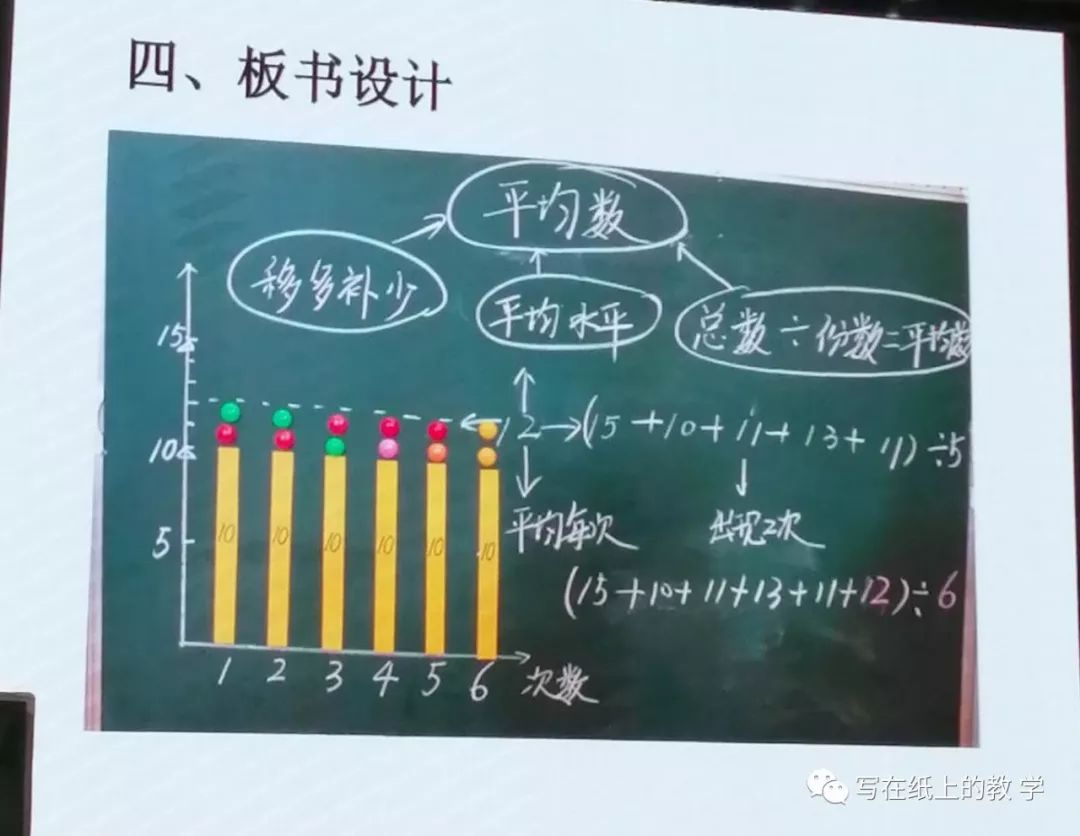 四、板书设计
平均数
移多补少
平均水平
总数÷份数=平均数
15
10
5
12→(15+10+11+13+11)÷5
平均每次
出现2次
(15+10+11+13+11+12)÷6
10 10 10 10 10 10
1 2 3 4 5 6 次数
写在纸上的教 学